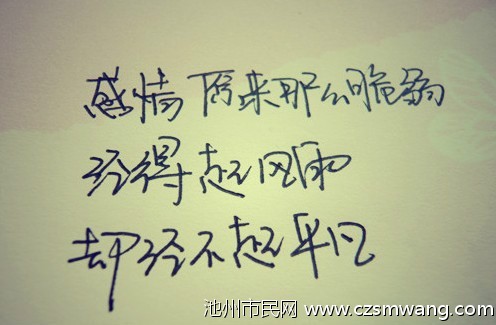 感情原来那么脆弱
经得起风雨
却经不起平凡
池州市民网 www.czsmwang.com